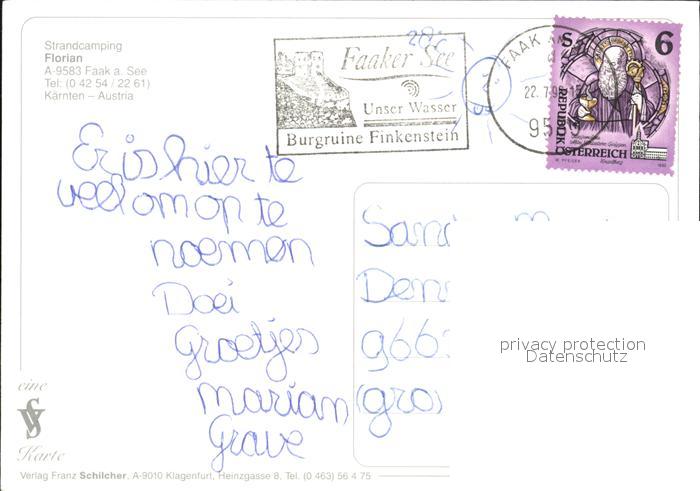 Strandcamping
Florian
A-9583 Faak a. See
Tel: (0 42 54 / 22 61)
Kärnten – Austria
Faaker See
Unser Wasser
Burgruine Finkenstein
FAAK AM
22.7.9
95
S 6
REPUBLIK
ÖSTERREICH
Er is hier te
veel om op te
noemen
Doei
Groetjes
marian
Grave
966
(gro
privacy protection
Datenschutz
eine
Karte
Verlag Franz Schilcher, A-9010 Klagenfurt, Heinzgasse 8, Tel. (0 463) 56 4 75